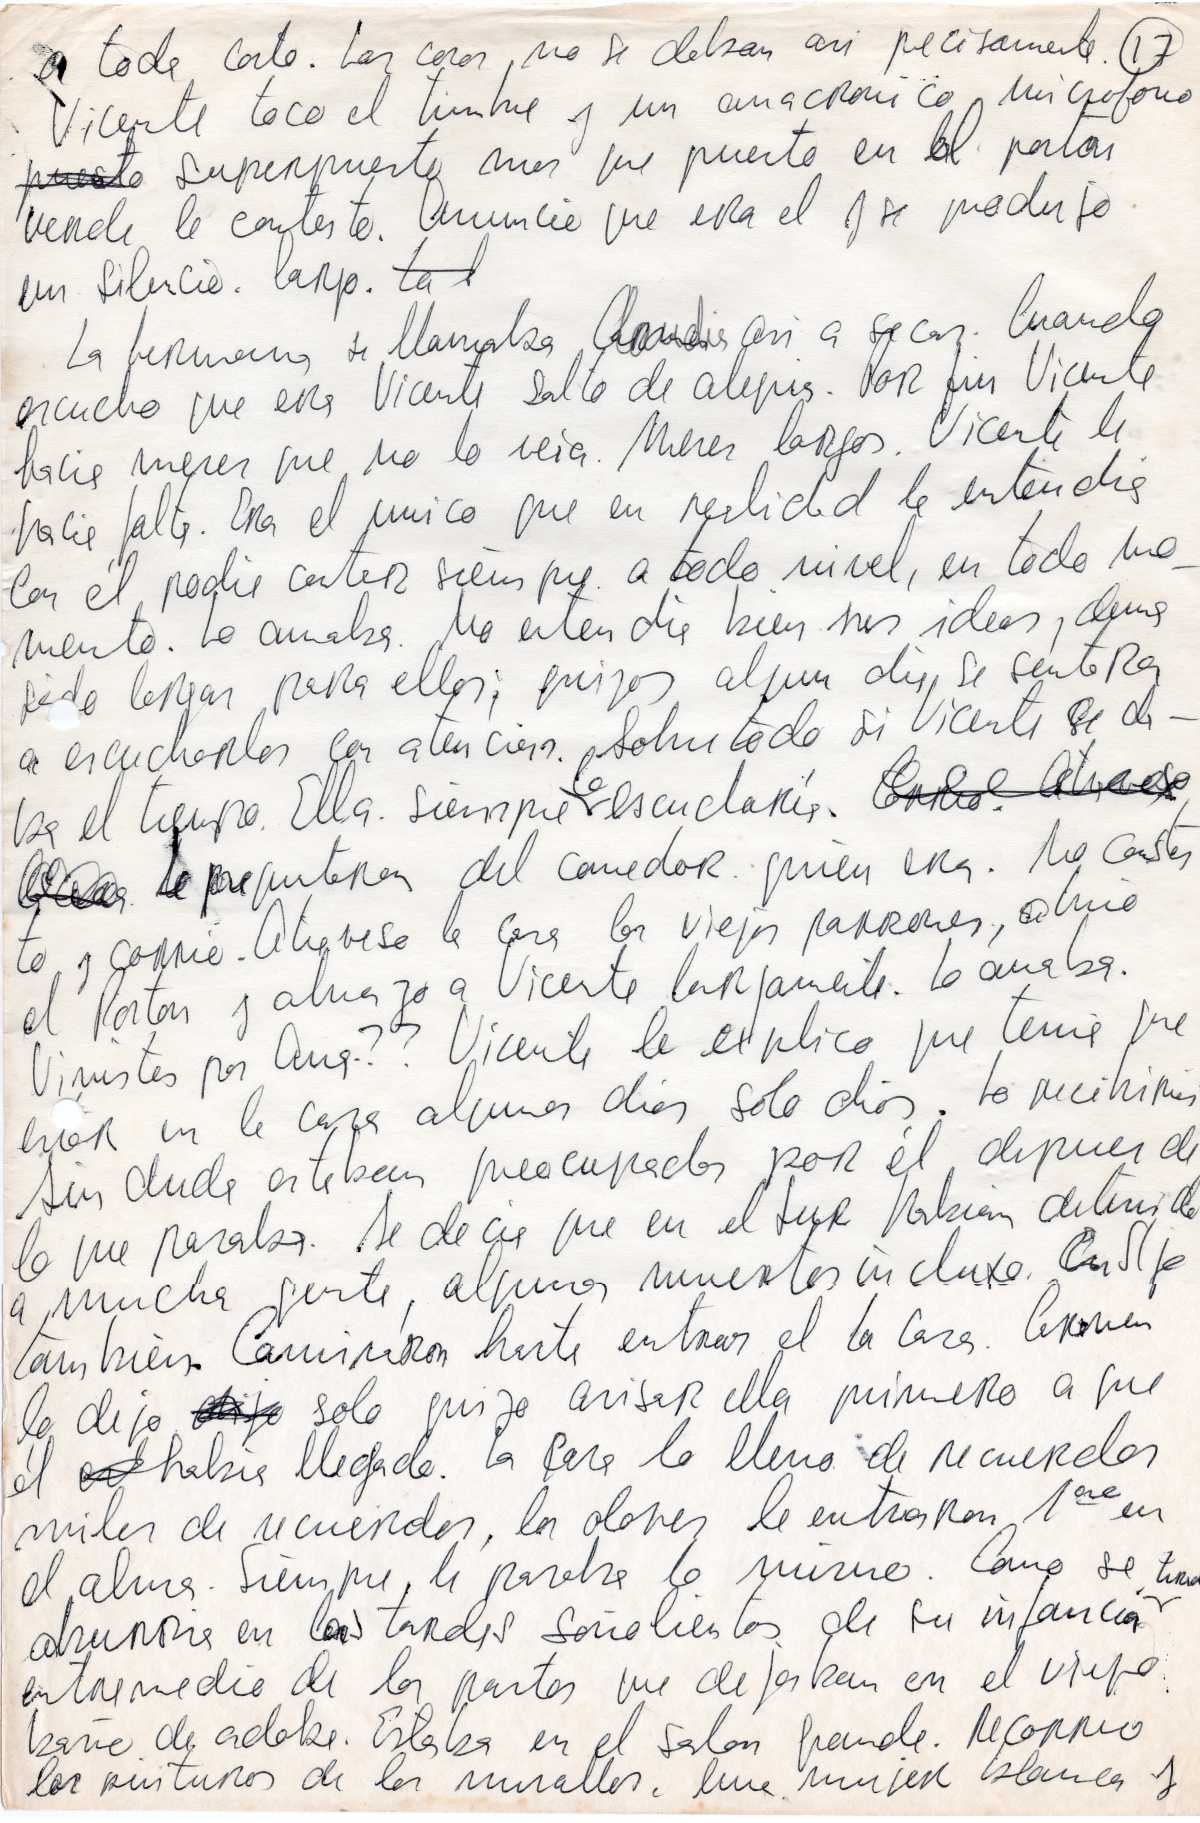 a toda costa. Las cosas no se debian asi precisamente. 17
Vicente toco el timbre y un anacronico microfono
puesto superpuesto mas que puesto en el porton
verde le contesto. Anuncio que era el y se produjo
un silencio. largo. tal
La hermana se llamaba asi a secas. Cuando
escucho que era Vicente salto de alegria. Por fin Vicente
hacia meses que no lo veia. Meses largos. Vicente le
hacia falta. Era el unico que en realidad la entendia
Con él podia contar siempre. a todo nivel, en todo mo-
mento. Lo amaba. No entendia bien sus ideas, dema
siado largas para ellos; quizas algun dia se sentaran
a escucharlos con atencion. Sobre todo si Vicente se da-
ba el tiempo. Ella. siempre lo escucharia. Corrio. Atraveso
le preguntaron del comedor quien era. No contes
to y corrio. Atraveso la casa los viejos parrones, abrio
el Porton y abrazo a Vicente largamente. Lo amaba.
Vinistes por Ana?? Vicente le explico que tenia que
estar en la casa algunos dias solo dias. Lo recibirian
sin duda estaban preocupados por él despues de
lo que pasaba. Se decia que en el sur habian detenido
a mucha gente, algunos muertos incluso. dijo
tambien. Caminaron hasta entrar el la casa. Carmen
lo dejo dijo solo quizo avisar ella primero a que
él habia llegado. La casa lo lleno de recuerdos
miles de recuerdos, los olores le entraron 1ero en
el alma. Siempre le pasaba lo mismo. Como se
aburria en las tardes soñolientas de su infancia
entremedio de los pastos que dejaban en el viejo
baño de adobe. Estaba en el salon grande. Recorrio
las pinturas de las murallas. Una mujer blanca y